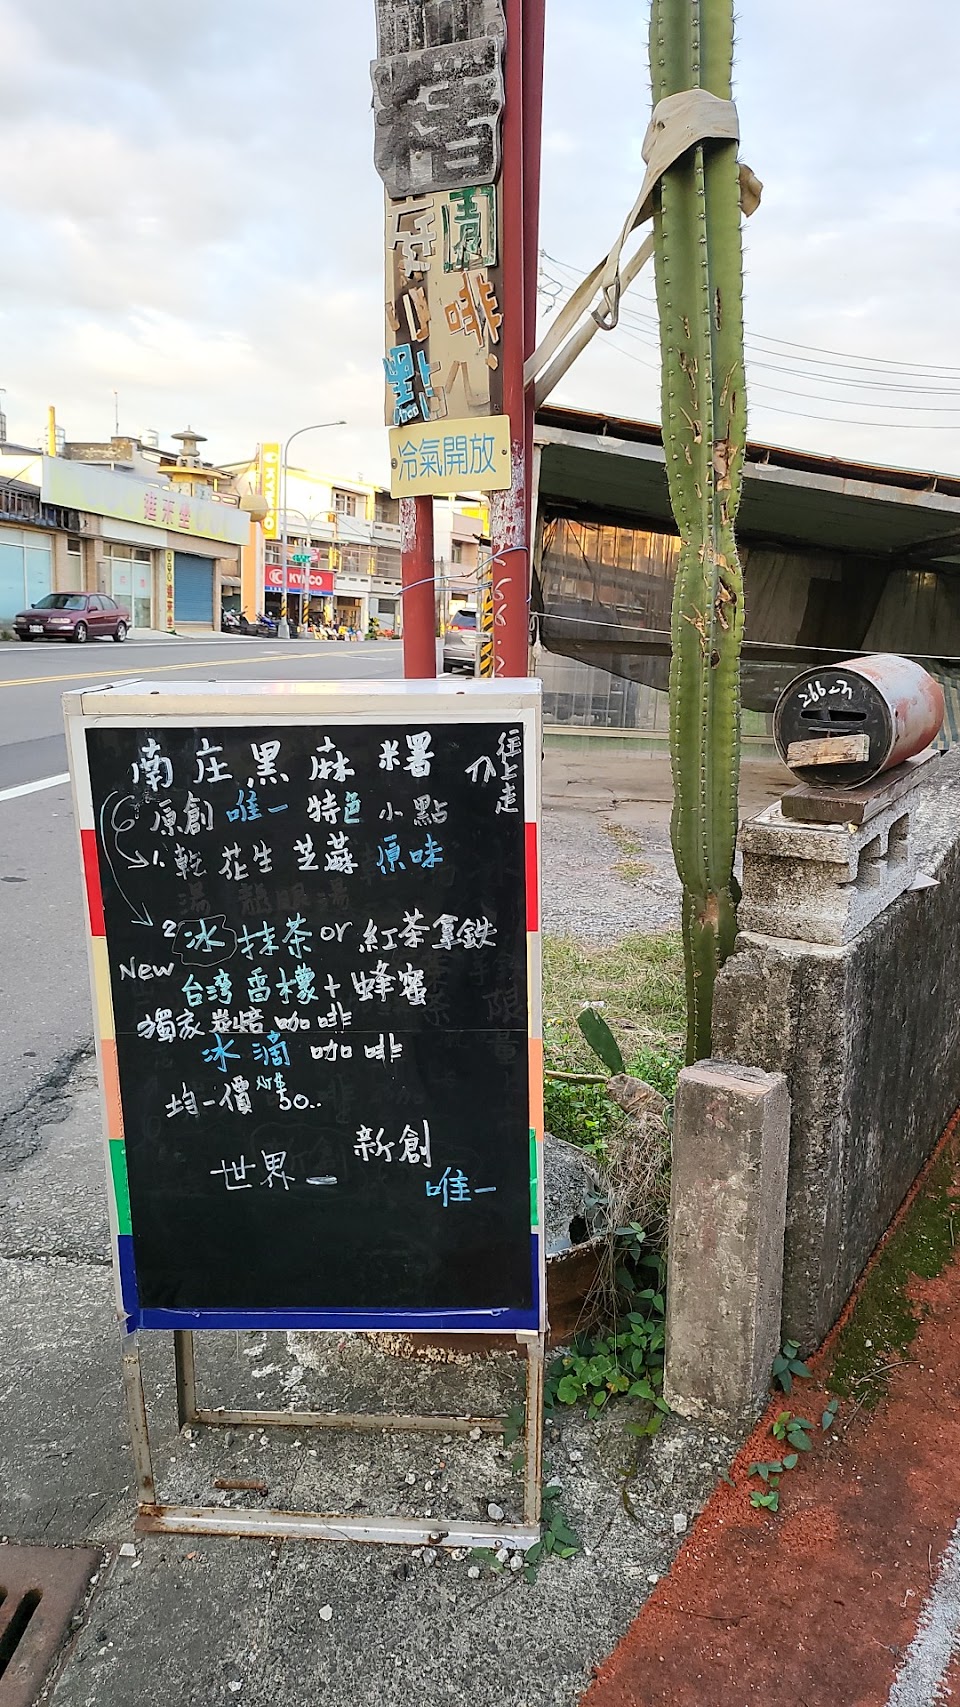 糬
庭園
咖啡
小點
冷氣開放
KYMCO
266-3
南庄黑麻糬
往上走
原創唯一特色小點
1.乾花生芝蔴原味
湯 龍眼湯
2冰抹茶or紅茶拿鐵
New
台湾香檬+蜂蜜
獨家炭焙咖啡
冰滴咖啡
均一價 50..
新創
世界
唯一